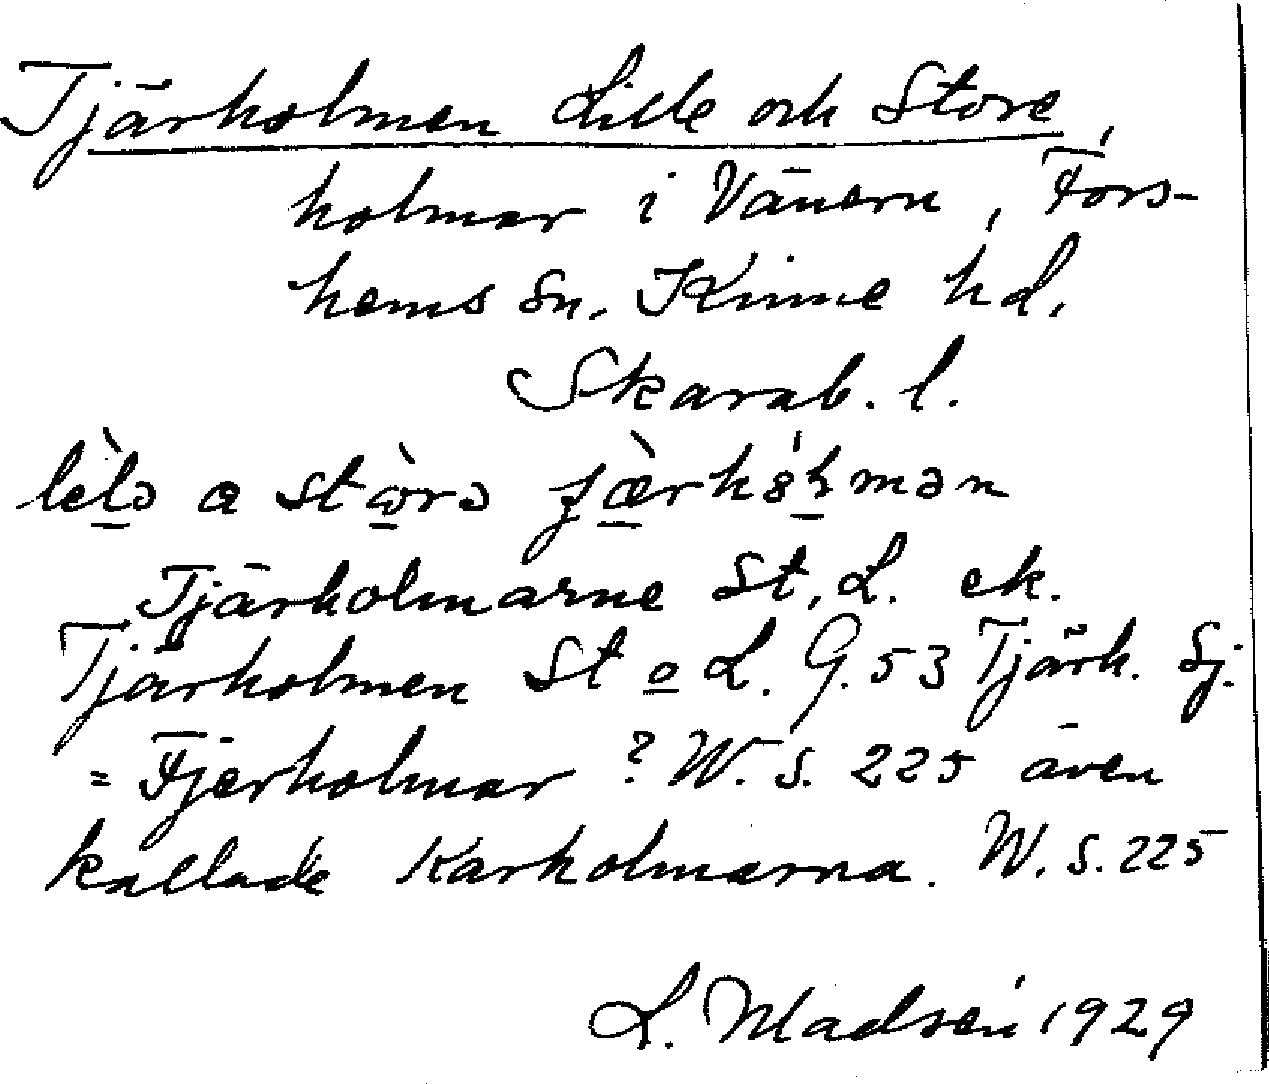 Tjärholmen Lille och Store,
holmar i Vänern, Fors-
hems sn. Kinne hd.
Skarab. l.
lèlə a stòrə ʃæ̀rhólmən
Tjärholmarne St, L. ek.
Tjärholmen St o L. G. 53 Tjärh. Sj.
= Fjärholmar ? W. S. 225 även
kallade Karholmarna. W. S. 225
L. Madsén 1929